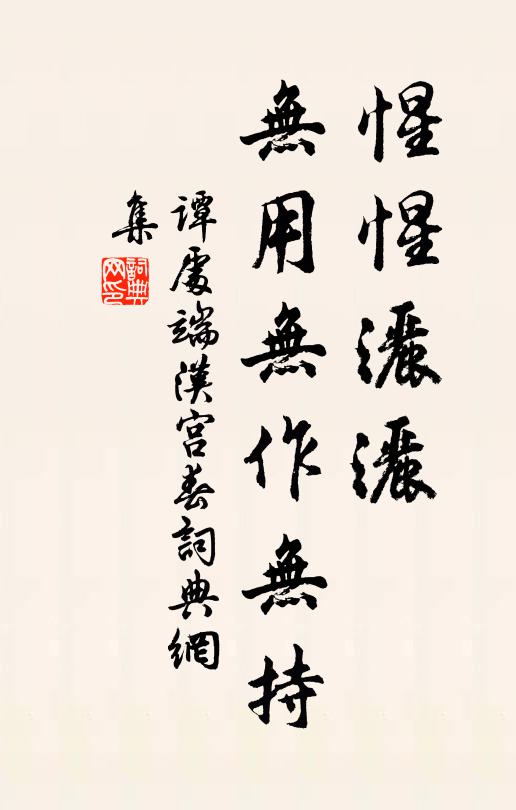 惺惺灑灑
無用無作無持
譚處端漢宮春詞典網
集
詞典網印